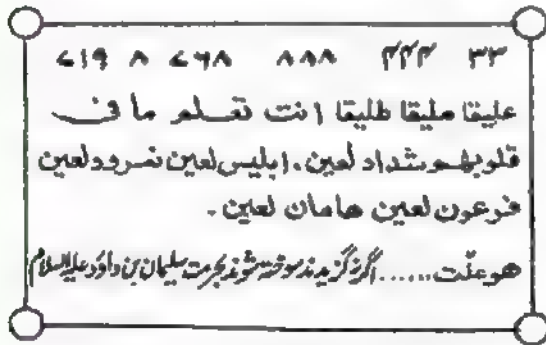 ۷۱۹ ۸ ۷۶۸ ۸۸۸ ۴۴۴ ۳۳
علیقا ملیقا طلیقا انت تعلم ما فی
قلوبهم شداد لعین . ابلیس لعین نمرود لعین
فرعون لعین هامان لعین .
هر علّت ...... اگر نگزیند سوخته شوند بحرمت سلیمان بن داؤد علیہ السلام